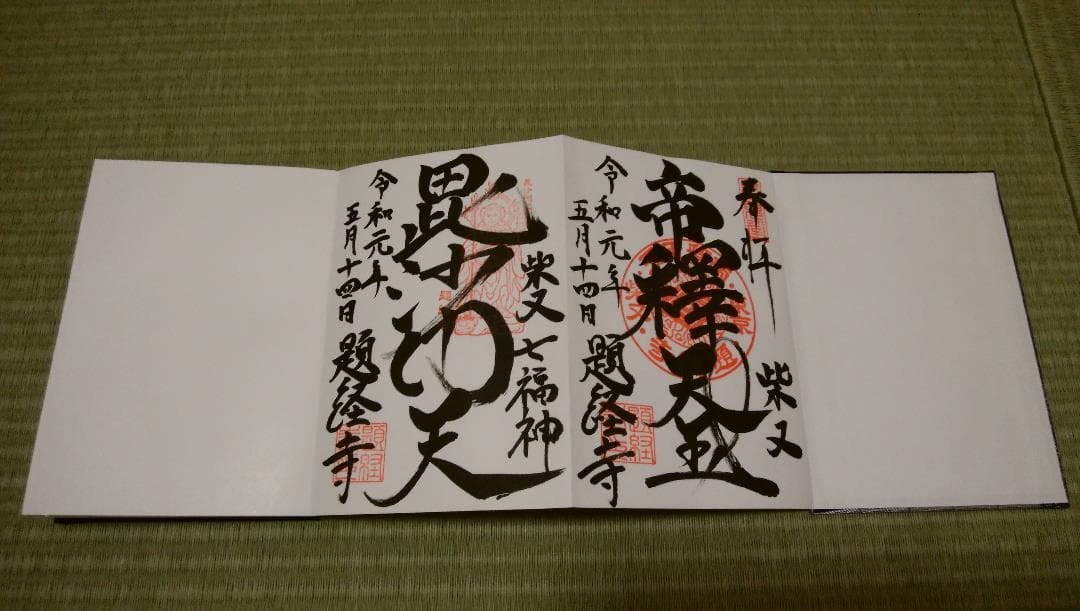 奉拝
柴又
帝釋天王
令和元年
五月十四日
題経寺
柴又
七福神
毘沙門天
令和元年
五月十四日
題経寺